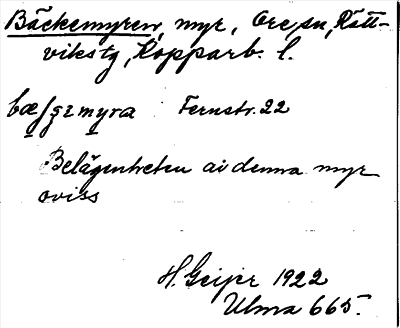 Bäckemyren, myr, Ore sn, Rätt-
vikstg, Kopparb. l.
Fernstr. 22
Belägenheten av denna myr
oviss
H. Geijer 1922
Ulma 665.